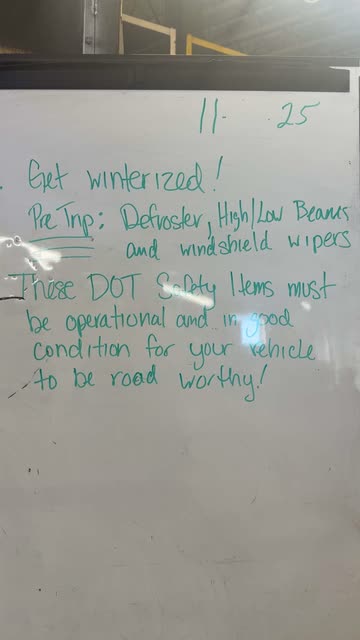 11- .25
. Get winterized!
Pre Trip: Defroster, High/Low Beams
and windshield wipers
These DOT Safety Items must
be operational and in good
condition for your vehicle
to be road worthy!